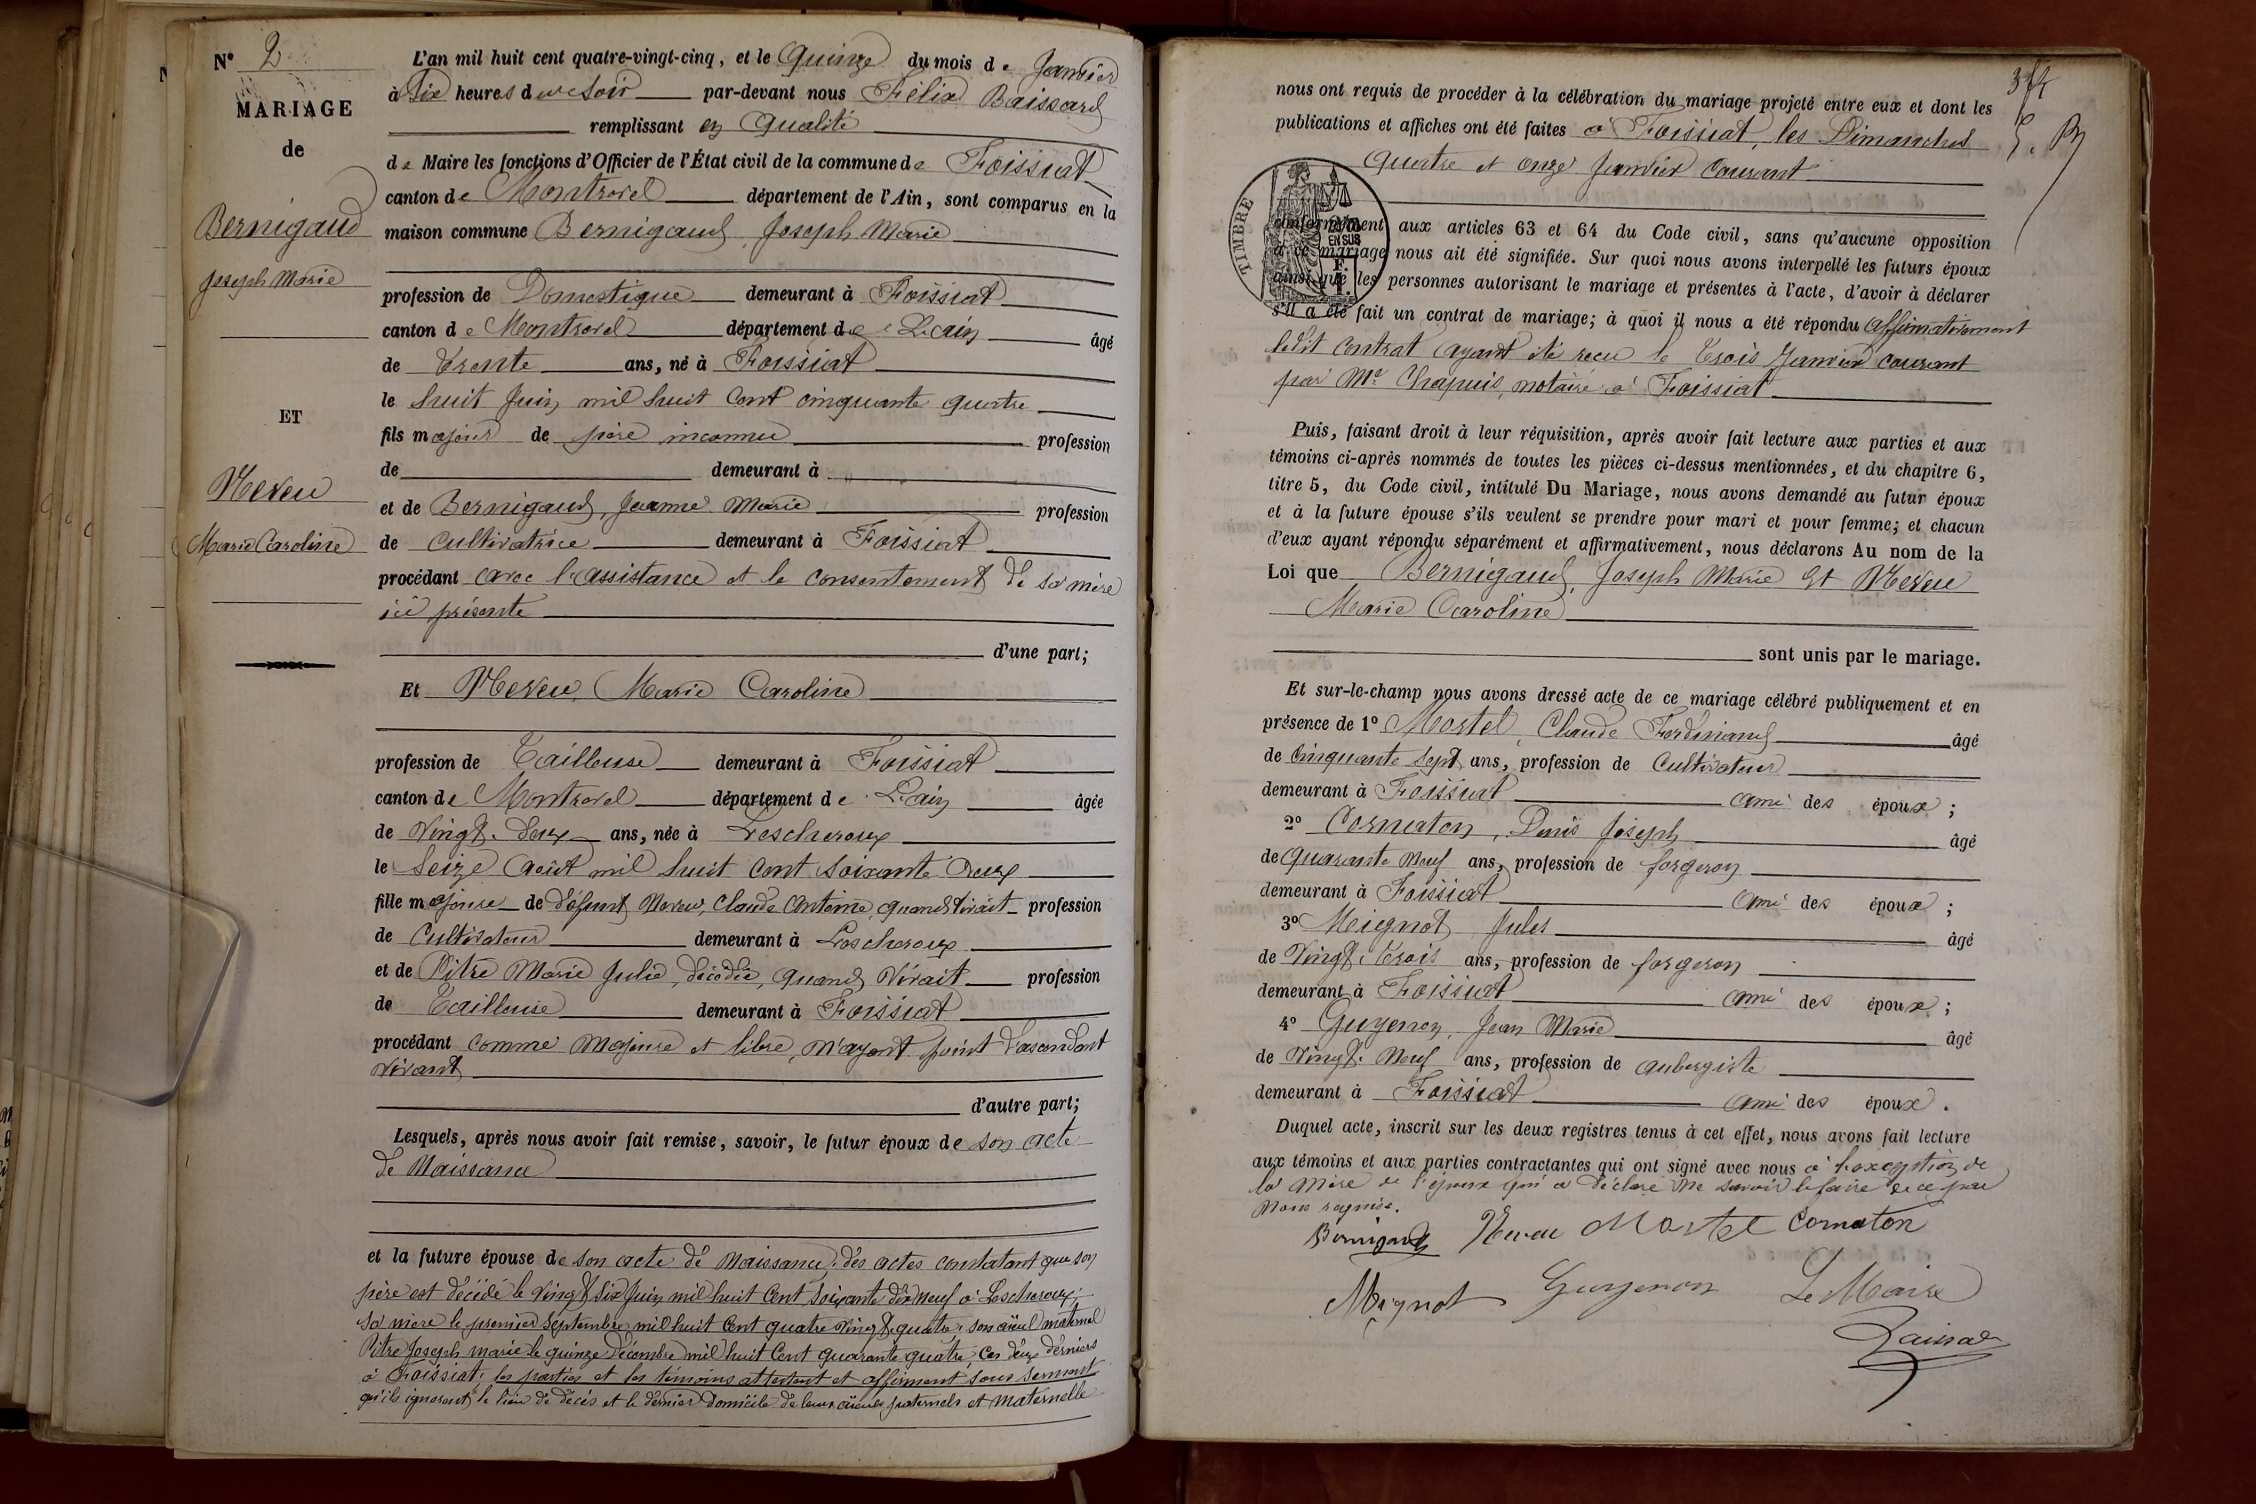 N° 2
MARIAGE
de
Bernigaud
Joseph Marie
ET
Neveu
Marie Caroline
L'an mil huit cent quatre-vingt-cinq, et le Quinze du mois de Janvier
à Six heures du Soir par-devant nous Félix
remplissant en Qualité
de Maire les fonctions d'Officier de l'État civil de la commune de Foissiat
canton de Montrevel département de l'Ain, sont comparus en la
maison commune Bernigaud, Joseph Marie
profession de Domestique demeurant à Foissiat
canton de Montrevel département de L'ain âgé
de Trente ans, né à Foissiat
le huit Juin mil huit Cent cinquante quatre
fils majeur de père inconnu profession
de demeurant à
et de Bernigaud, Jeanne Marie profession
de Cultivatrice demeurant à Foissiat
procédant avec l'assistance et le consentement de sa mère
ici présente
d'une part;
Et Neveu, Marie Caroline
profession de Tailleuse demeurant à Foissiat
canton de Montrevel département de L'ain âgée
de Vingt-deux ans, née à Lescheroux
le Seize Août mil huit cent soixante Deux
fille majeure de défunt Neveu, Claude Antoine, quand vivait profession
de Cultivateur demeurant à Lescheroux
et de Pitre Marie Julie, décédée, quand Vivait profession
de Tailleuse demeurant à Foissiat
procédant comme Majeure et libre, n'ayant point d'ascendant
Vivant
d'autre part;
Lesquels, après nous avoir fait remise, savoir, le futur époux de son acte
de Naissance
et la future épouse de son acte de Naissance, des actes constatant que son
père est décédé le vingt six Juin mil huit Cent soixante dix neuf à Lescheroux,
sa mère le premier Septembre mil huit Cent quatre vingt quatre, son aïeul maternel
Pitre Joseph Marie le quinze Décembre mil huit Cent quarante quatre, Ces deux derniers
à Foissiat; les parties et les témoins attestent et affirment sous serment
qu'ils ignorent le lieu de décès et le dernier domicile de leurs aïeuls paternels et maternelle
nous ont requis de procéder à la célébration du mariage projeté entre eux et dont les
publications et affiches ont été faites à Foissiat, les Dimanches
Quatre et onze Janvier Courant
TIMBRE
conformément aux articles 63 et 64 du Code civil, sans qu'aucune opposition
à ce mariage nous ait été signifiée. Sur quoi nous avons interpellé les futurs époux
ainsi que les personnes autorisant le mariage et présentes à l'acte, d'avoir à déclarer
s'il a été fait un contrat de mariage; à quoi il nous a été répondu affirmativement
ledit contrat ayant été reçu le Trois Janvier courant
par Me Chapuis, notaire à Foissiat
Puis, faisant droit à leur réquisition, après avoir fait lecture aux parties et aux
témoins ci-après nommés de toutes les pièces ci-dessus mentionnées, et du chapitre 6,
titre 5, du Code civil, intitulé Du Mariage, nous avons demandé au futur époux
et à la future épouse s'ils veulent se prendre pour mari et pour femme; et chacun
d'eux ayant répondu séparément et affirmativement, nous déclarons Au nom de la
Loi que Bernigaud, Joseph Marie Et Neveu
Marie Caroline
sont unis par le mariage.
Et sur-le-champ nous avons dressé acte de ce mariage célébré publiquement et en
présence de 1° Mortel, Claude Ferdinand âgé
de Cinquante Sept ans, profession de Cultivateur
demeurant à Foissiat ami des époux;
2° Cornaton, Denis Joseph âgé
de Quarante Neuf ans, profession de forgeron
demeurant à Foissiat ami des époux;
3° Meignot Jules âgé
de Vingt-Trois ans, profession de forgeron
demeurant à Foissiat ami des époux;
4° Guyenon, Jean Marie âgé
de Vingt-Neuf ans, profession de aubergiste
demeurant à Foissiat ami des époux.
Duquel acte, inscrit sur les deux registres tenus à cet effet, nous avons fait lecture
aux témoins et aux parties contractantes qui ont signé avec nous à l'exception de
la mère de l'époux qui a déclaré ne savoir le faire de ce par
Nous requise.
Bernigaud Neveu Mortel Cornaton
Mignot Guyenon Le Maire